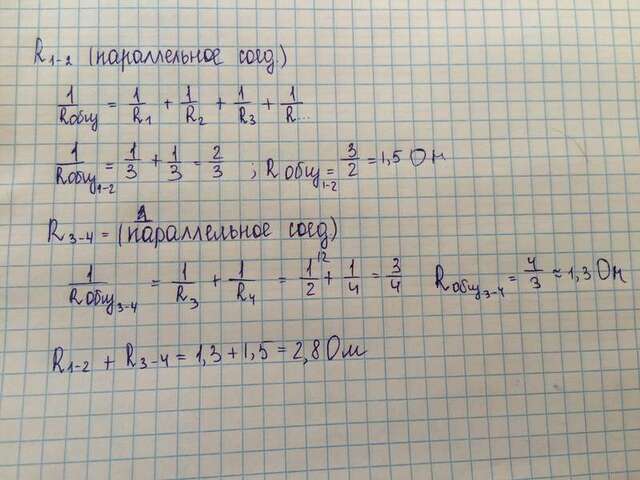 R₁₋₂ (параллельное соед)
1/Rобщ = 1/R₁ + 1/R₂ + 1/R₃ + 1/R...
1/Rобщ₁₋₂ = 1/3 + 1/3 = 2/3 ; Rобщ₁₋₂ = 3/2 = 1,5 Ом
R₃₋₄ = (параллельное соед)
1/Rобщ₃₋₄ = 1/R₃ + 1/R₄ = 1/2 + 1/4 = 3/4 Rобщ₃₋₄ = 4/3 ≈ 1,3 Ом
R₁₋₂ + R₃₋₄ = 1,3 + 1,5 = 2,8 Ом